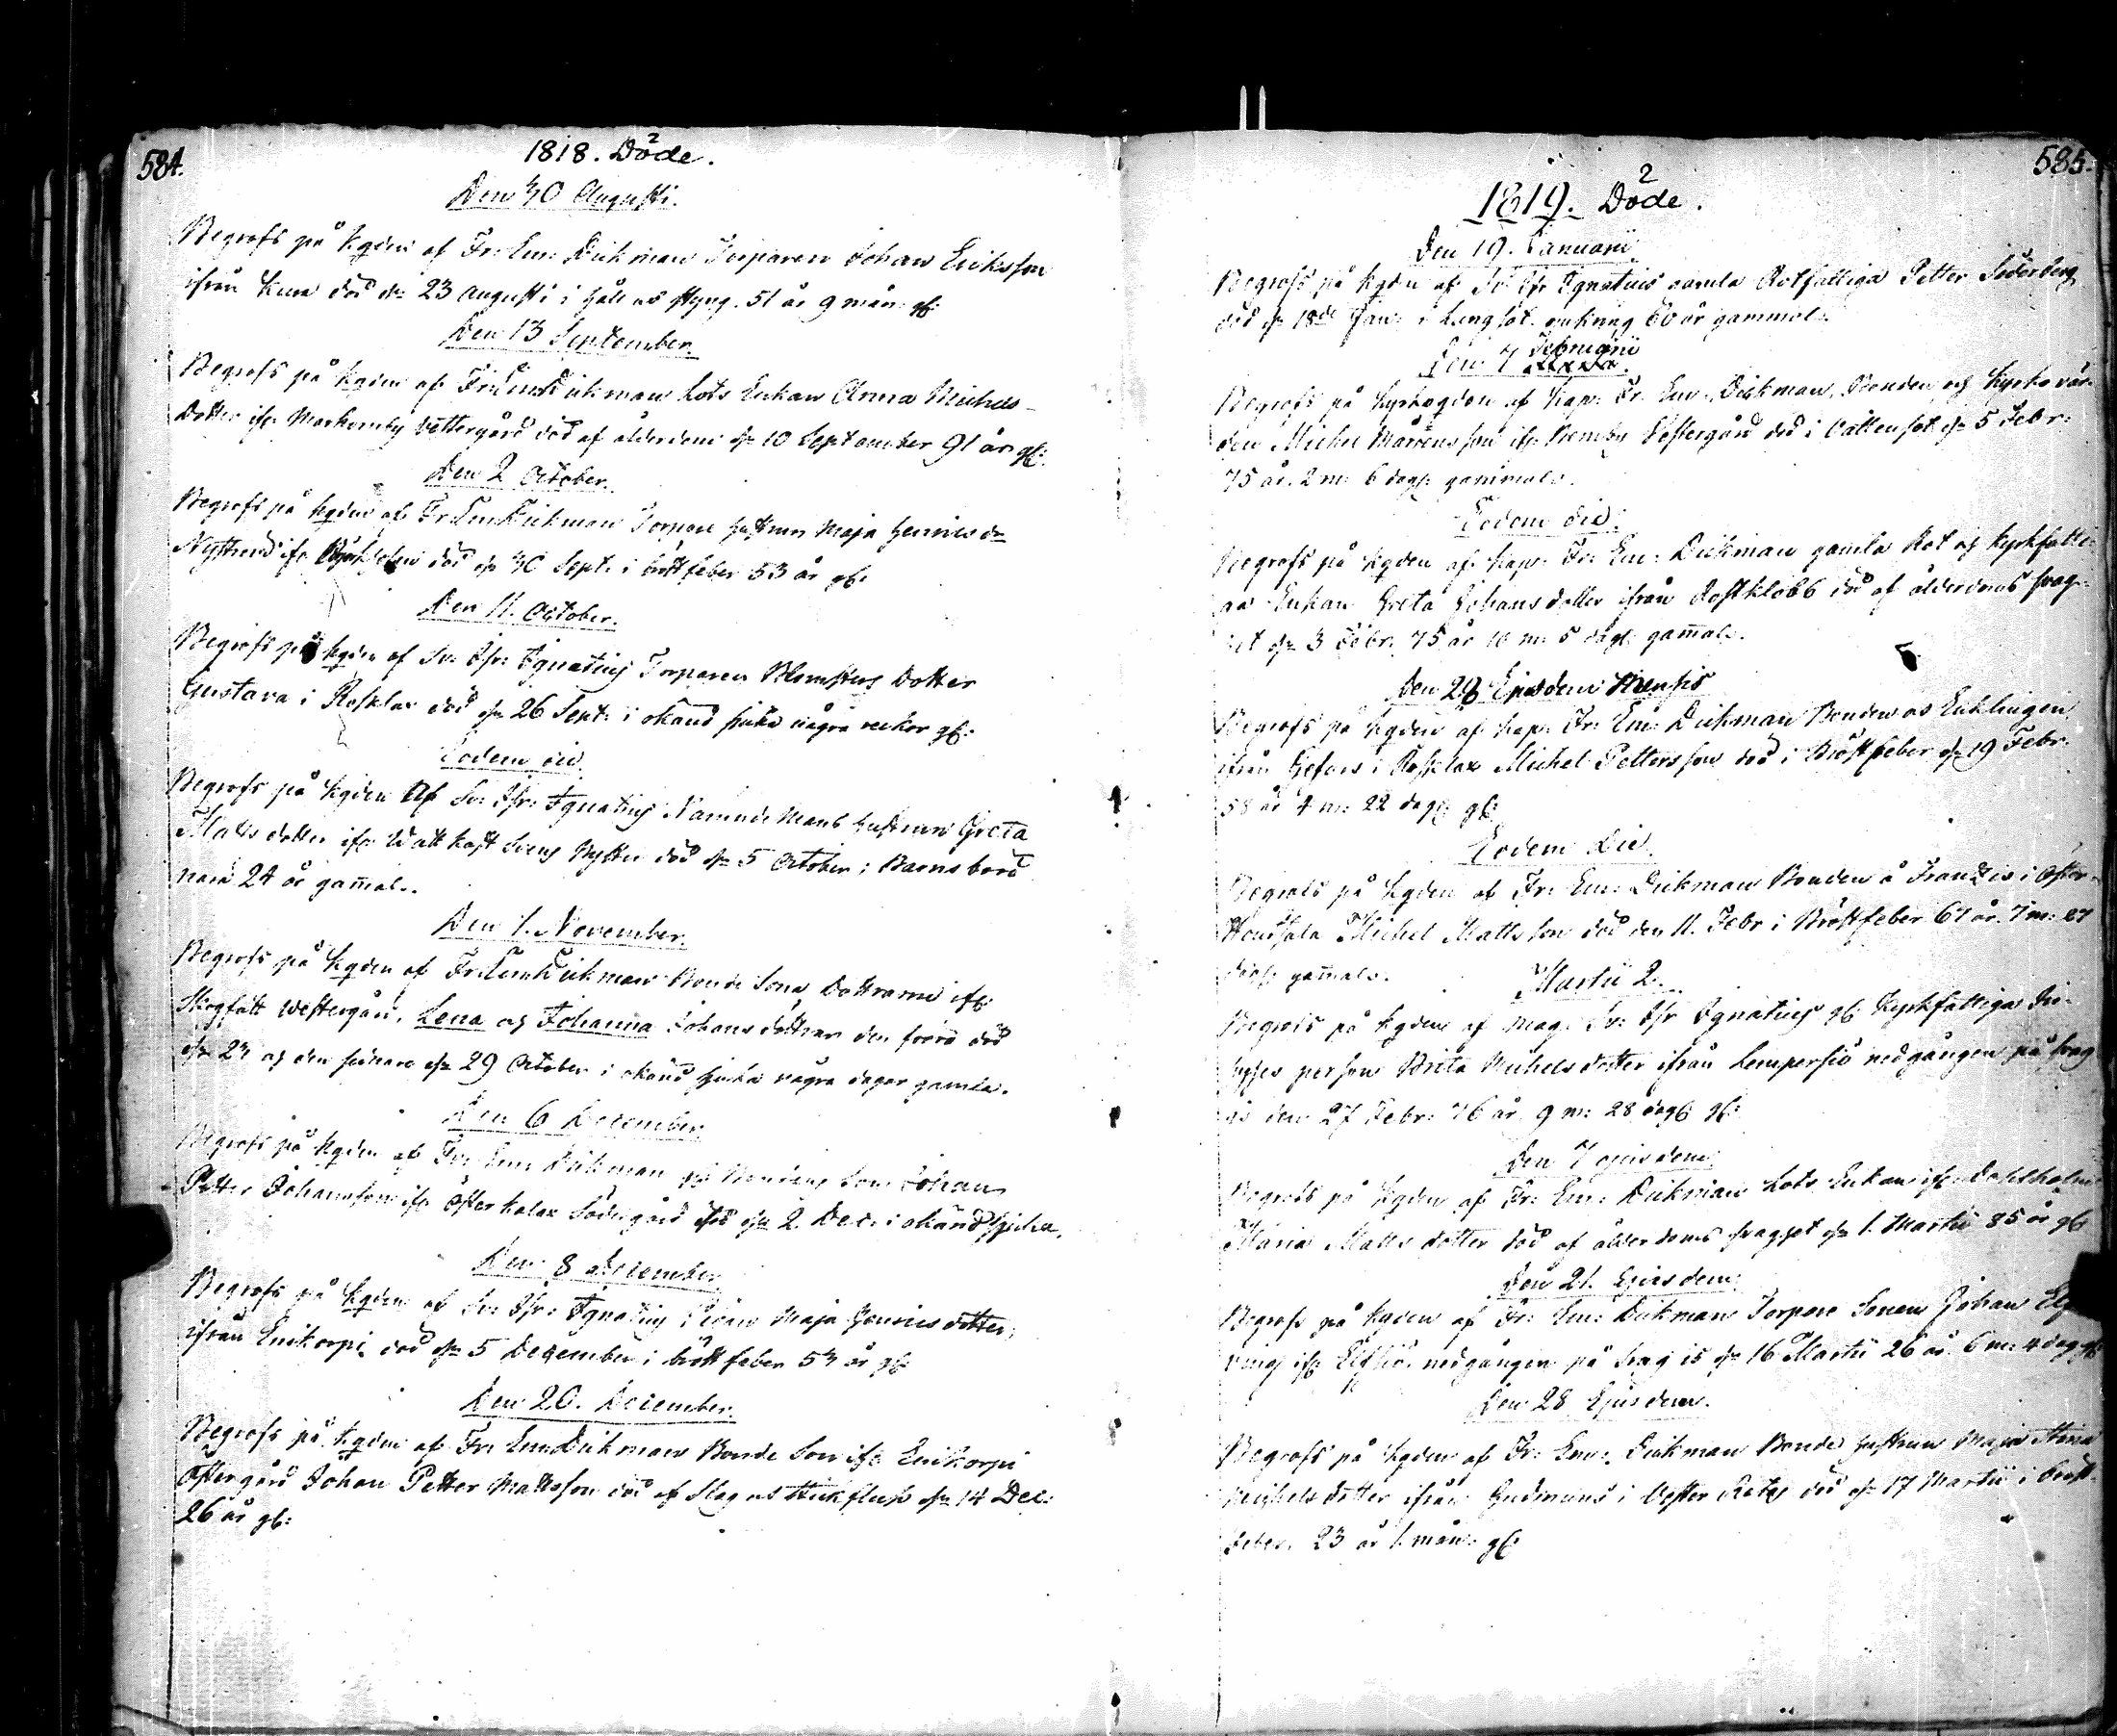 584.
1818. Döde.
Den 30 Augusti.
Begrofs på kgden af Fr: Em: Dickman Torparen Johan Eriksson
ifrån død dn 23 Augusti i håll och styng. 51 år 9 mån: gl:
Den 13 September.
Begrofs på kgden af Fr: Em: Dickman Lots Enkan Anna Michels
dotter ifr: Markomby Vestergård död af ålderdom dn 10 September 91 år gl:
Den 2 October.
Begrofs på kgden af Fr: Em: Dickman Torpare hustrun Maja Henricsdr
ifr: död dn 30 Sept: i bröstfeber 53 år gl:
Den 11. October.
Begrofs på kgden af Sv: Ifr: Ignatius Torparen Dotter
Gustava i Rosklax död dn 26 Sept: i okänd sjuka några veckor gl:
Eodem die.
Begrofs på kgden Af Sv: Ifr: Ignatius Nämndemans hustrun Greta
Matts dotter ifr: död dn 5 October i Barnsbörd
24 år gammal.
Den 1. November.
Begrofs på kgden af Fr: Em: Dickman Bonde Sons Döttrarne ifr:
Skogsätt Westergård, Lena och Johanna Johans döttrar den förra död
dn 23 och den sednare dn 29 October i okänd sjuka några dagar gamla.
Den 6 December.
Begrofs på kgden af Fr: Em: Dickman Bondens Son Johan
Petter Johansson ifr: Österkalax Södergård död dn 2. Dec: i okänd sjuka.
Den 8 December
Begrofs på kgden af Sv: Ifr: Ignatius Pigan Maja Henrics dotter
ifrån Enikorpi död dn 5 December i bröstfeber 53 år gl:
Den 20. December.
Begrofs på kgden af Fr: Em: Dickman Bonde Son ifr: Enikorpi
Östergård Johan Petter Mattsson död af Slag och dn 14 Dec:
26 år gl:
585.
1819. Döde.
Den 19. Januarii
Begrofs på kgden af Sv: Ifr: Ignatius gamla Rotfattiga Petter Söderberg
död dn 18de Jan: i Lungsot. 60 år gammal.
Den 7 Februarii
Begrofs på kyrkogden af Kap: Fr: Em: Dickman, Bonden och kyrkovär-
den Michel Mårtensson ifr: Nemby Vestergård död i Vattensot dn 5 Febr:
75 år. 2 m: 6 dag: gammal.
Eodem die.
Begrofs på kgden af Kap: Fr: Em: Dickman gamla Rot och kyrkfatti-
ga Enkan Greta Johans dotter ifrån Rostklobb död af ålderdoms svag-
het dn 3 Febr: 75 år 10 m: 5 dag: gammal.
Den 28 Ejusdem Mensis
Begrofs på kgden af Kap: Fr: Em: Dickman Bonden och Enklingen
ifrån Gefors i Rosklax Michel Pettersson död i Bröstfeber dn 19 Febr.
58 år 4 m: 22 dag: gl:
Eodem die.
Begrofs på kgden af Fr: Em: Dickman Bonden å Frantsis i Öster-
Houtskala Michel Mattsson död den 11. Febr i Bröstfeber 67 år. 7 m: 27
dag: gammal.
Martii 2.
Begrofs på kgden af Mag: Sv: Ifr Ignatius gl: Kyrkfattiga In-
hyses person Brita Michels dotter ifrån Lempersjö nedgången på svag
is den 27 Febr: 76 år 9 m: 28 dag: gl:
Den 7 ejusdem.
Begrofs på kgden af Fr: Em: Dickman Lots Enkan ifr: Dahlholm
Maria Matts dotter död af ålderdoms svaghet dn 1. Martii 85 år gl:
Den 21. Ejusdem.
Begrofs på kgden af Fr: Em: Dickman Torpare Sonen Johan
ifr: Elfsjö nedgången på svag is dn 16 Martii 26 år. 6 m: 4 dag: gl:
Den 28 Ejusdem.
Begrofs på kgden af Fr: Em: Dickman Bonde hustrun Maja Stina
Michels dotter ifrån Gudmuns i Vester Retais död dn 17 Martii i bröst
feber. 23 år 1. mån: gl: